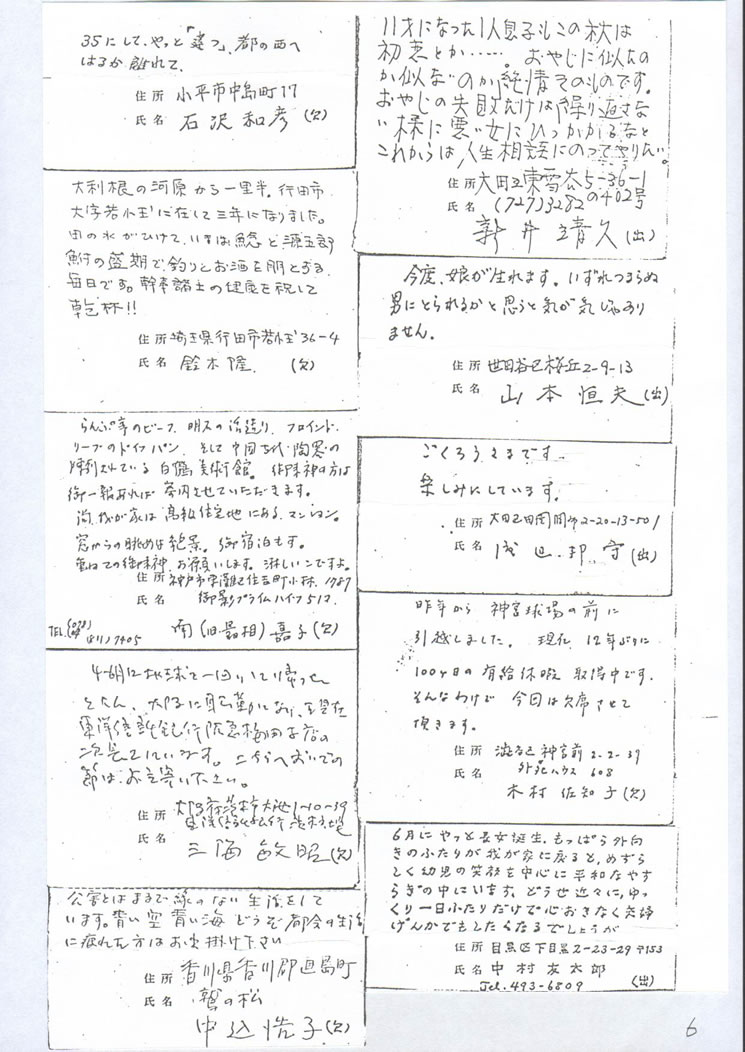 35にして、やっと「建つ」、都の西へ
はるか離れて、
住所 小平市中島町17
氏名 石沢和彦(欠)
大利根の河原から一里半。行田市
大字若小玉に在して三年になりました。
田の水がひけて、いまは鯰と源五郎
鮒の盛期で、釣りとお酒を朋とする
毎日です。幹事諸士の健康を祝して
乾杯!!
住所 埼玉県行田市若小玉36-4
氏名 鈴木隆 (欠)
らんぷ亭のビーフ、明石の活造り、フロインド
リーブのドイツパン、そして中国古代陶器の
陳列されている白鶴美術館。
御一報あれば案内させていただきます。
尚、我が家は高級住宅地にあるマンション。
窓からの眺めは絶景。御宿泊もす。
お願いします。淋しいんですよ。
住所 神戸市東灘区住吉町
氏名 御影プライムハイツ512
南(旧最相)嘉子(欠)
4-6月に地球を一回りして帰った
とたん、大阪に転勤になり、現在
東洋信託銀行阪急梅田支店の
次長をしています。こちらへおいでの
節はお立寄り下さい。
住所 大阪府茨木市大池1-10-39
氏名 三浦敏昭(欠)
公害とはまるで縁のない生活をして
います。青い空青い海どうぞ都会の生活
に疲れた方はお出掛け下さい
住所 香川県香川郡直島町
鷲の松
氏名 中込浩子(欠)
11才になった1人息子もこの秋は
初恋とか……。おやじに似たの
か似ないのか純情そのものです。
おやじの失敗だけは繰り返さな
い様に悪い女にひっかかるなと
これからは人生相談にのってやりたい。
住所 大田区東雪谷5-36-1
の402号
氏名 (727)3282
新井靖久(出)
今度、娘が生れます。いずれつまらぬ
男にとられるかと思うと気が気じゃあり
ません。
住所 世田谷区桜丘2-9-13
氏名 山本恒夫(出)
ごくろうさまです
楽しみにしています。
住所 大田区田園調布2-20-13-501
氏名 浅辺邦守(出)
昨年から神宮球場の前に
引越しました。現在12年ぶりに
100ヶ日の有給休暇取得中です。
そんなわけで今回は欠席させて
頂きます。
住所 渋谷区神宮前2-2-39
外苑ハウス608
氏名 木村佐知子(欠)
6月にやっと長女誕生。もっぱら外向
きのふたりが我が家に戻ると、めずら
しく幼児の笑顔を中心に平和なやす
らぎの中にいます。どうせ近々に、ゆっ
くり一日ふたりだけで心おきなく夫婦
げんかでもしたくなるでしょうが
住所 目黒区下目黒2-23-29 〒153
氏名 中村友太郎
Tel. 493-6809 (出)
6